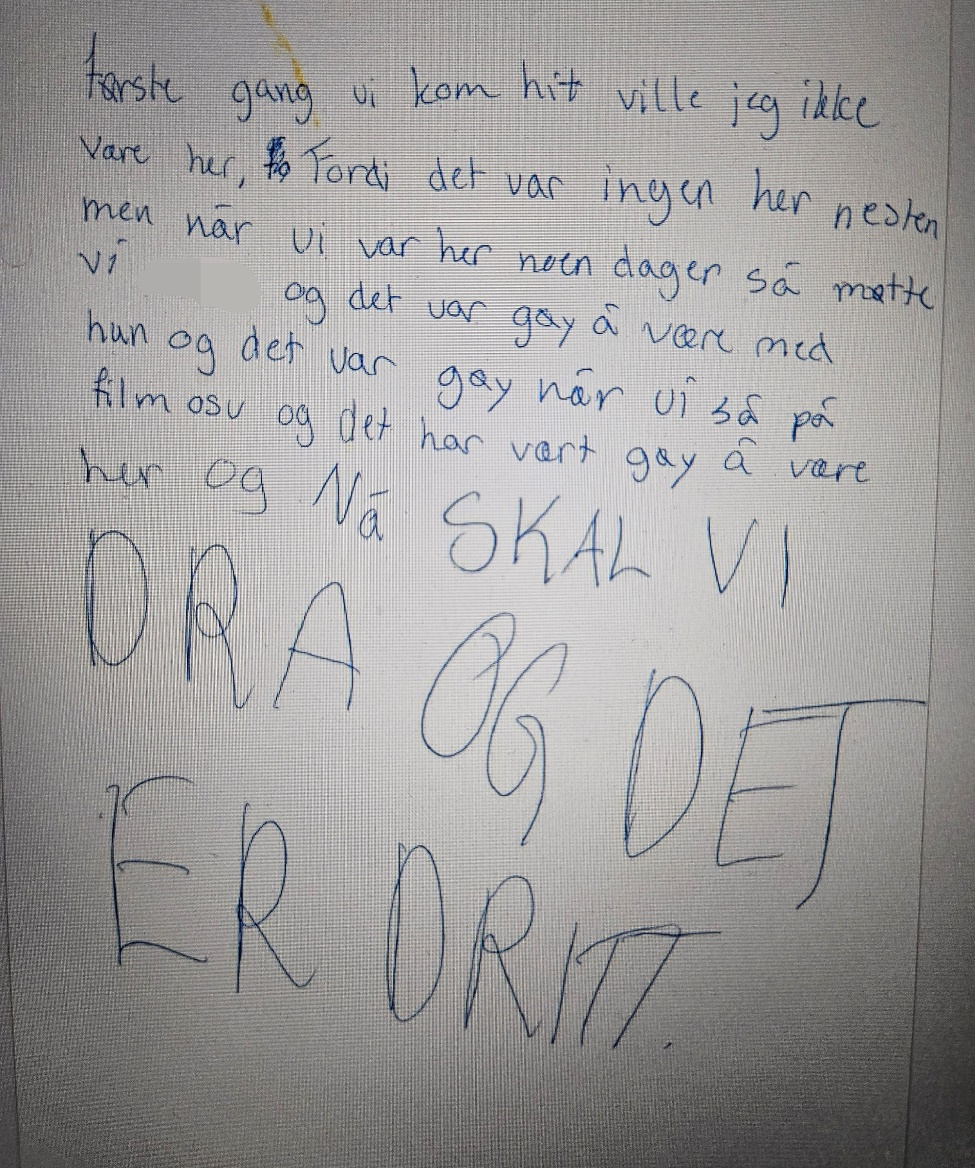 første gang vi kom hit ville jeg ikke
være her, Fordi det var ingen her nesten
men når vi var her noen dager så møtte
vi og det var gøy å være med
hun og det var gøy når vi så på
film osv og det har vært gøy å være
her og Nå SKAL VI
DRA OG DET
ER DRITT.